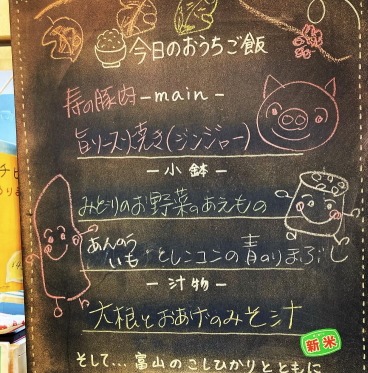 今日のおうちご飯
寿の豚肉 -main-
旨ソース焼き(ジンジャー)
-小鉢-
みどりのお野菜のあえもの
あんのういもとレンコンの青のりまぶし
-汁物-
大根とおあげのみそ汁
新米
そして... 富山のこしひかりとともに